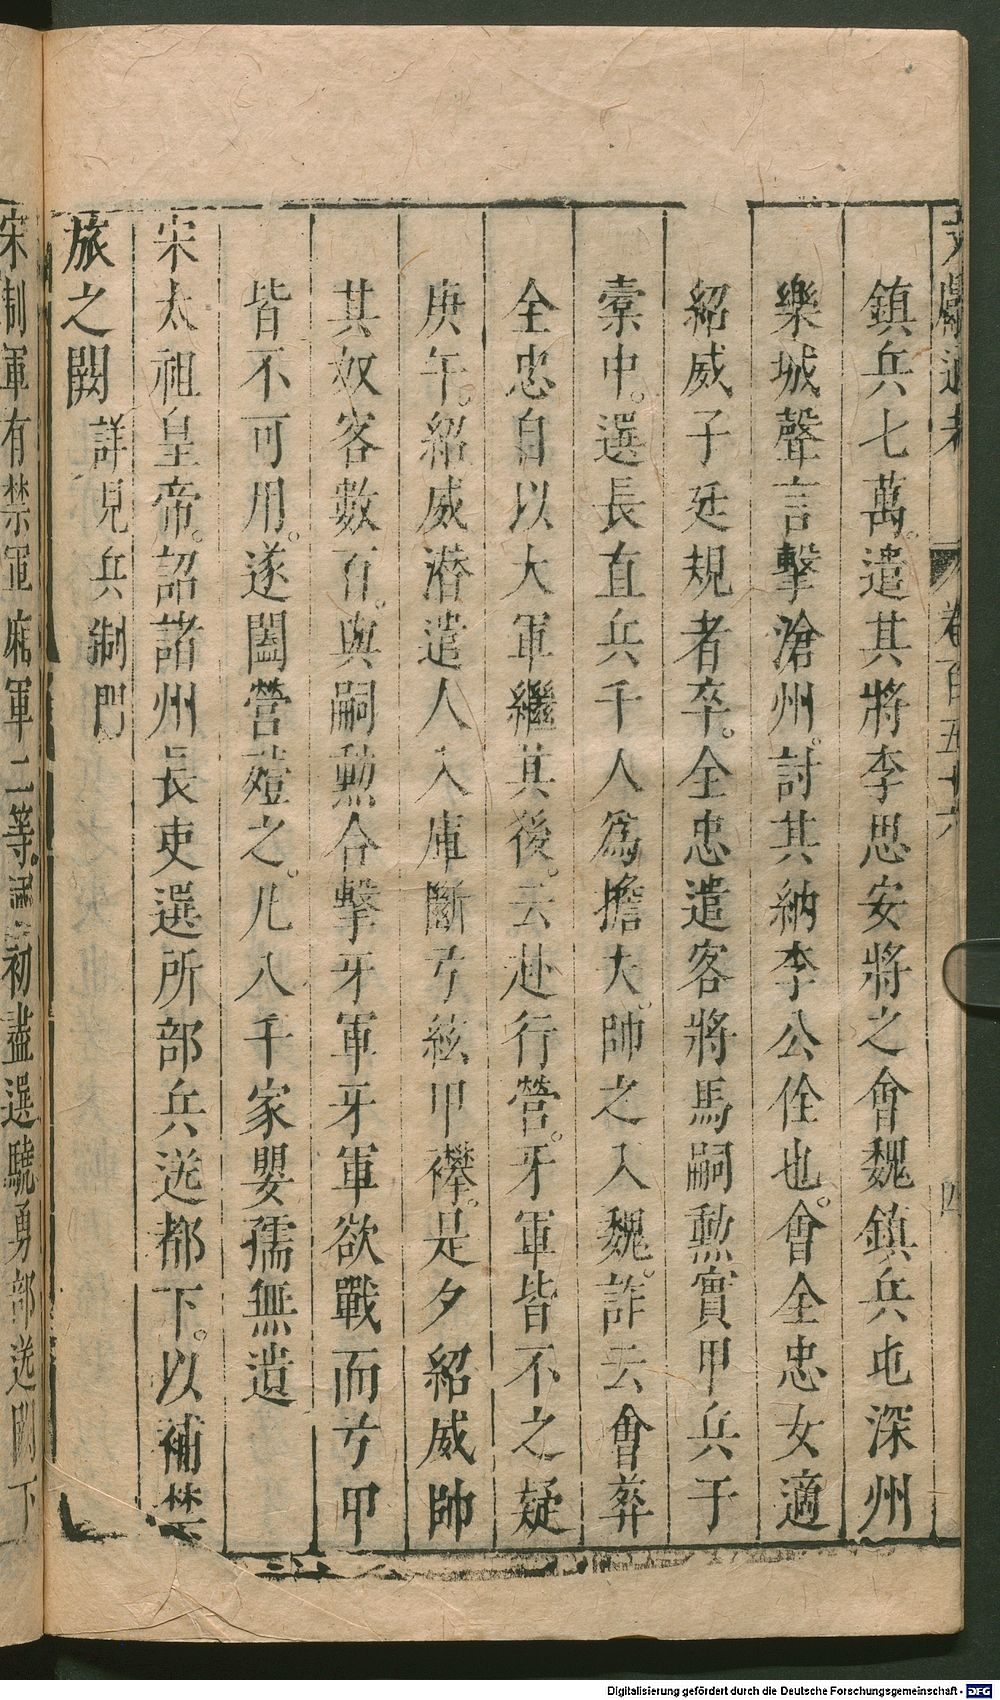 文獻通考 卷百五十六 四
鎮兵七萬。遣其將李思安將之會魏鎮兵屯深州
樂城聲言擊滄州。討其納李公佺也。會全忠女適
紹威子廷規者卒。全忠遣客將馬嗣勲實甲兵于
橐中。選長直兵千人爲擔夫。帥之入魏。詐云會葬
全忠自以大軍繼其後。云赴行營。牙軍皆不之疑
庚午。紹威潛遣人入庫斷弓絃甲襻。是夕紹威帥
其奴客數百。與嗣勲合擊牙軍牙軍欲戰而弓甲
皆不可用。遂闔營殪之。凡八千家嬰孺無遺
宋太祖皇帝。詔諸州長吏選所部兵送都下。以補禁
旅之闕 詳見兵制門
宋制軍有禁軍廂軍二等。初盡選驍勇部送闕下
Digitalisierung gefördert durch die Deutsche Forschungsgemeinschaft - DFG